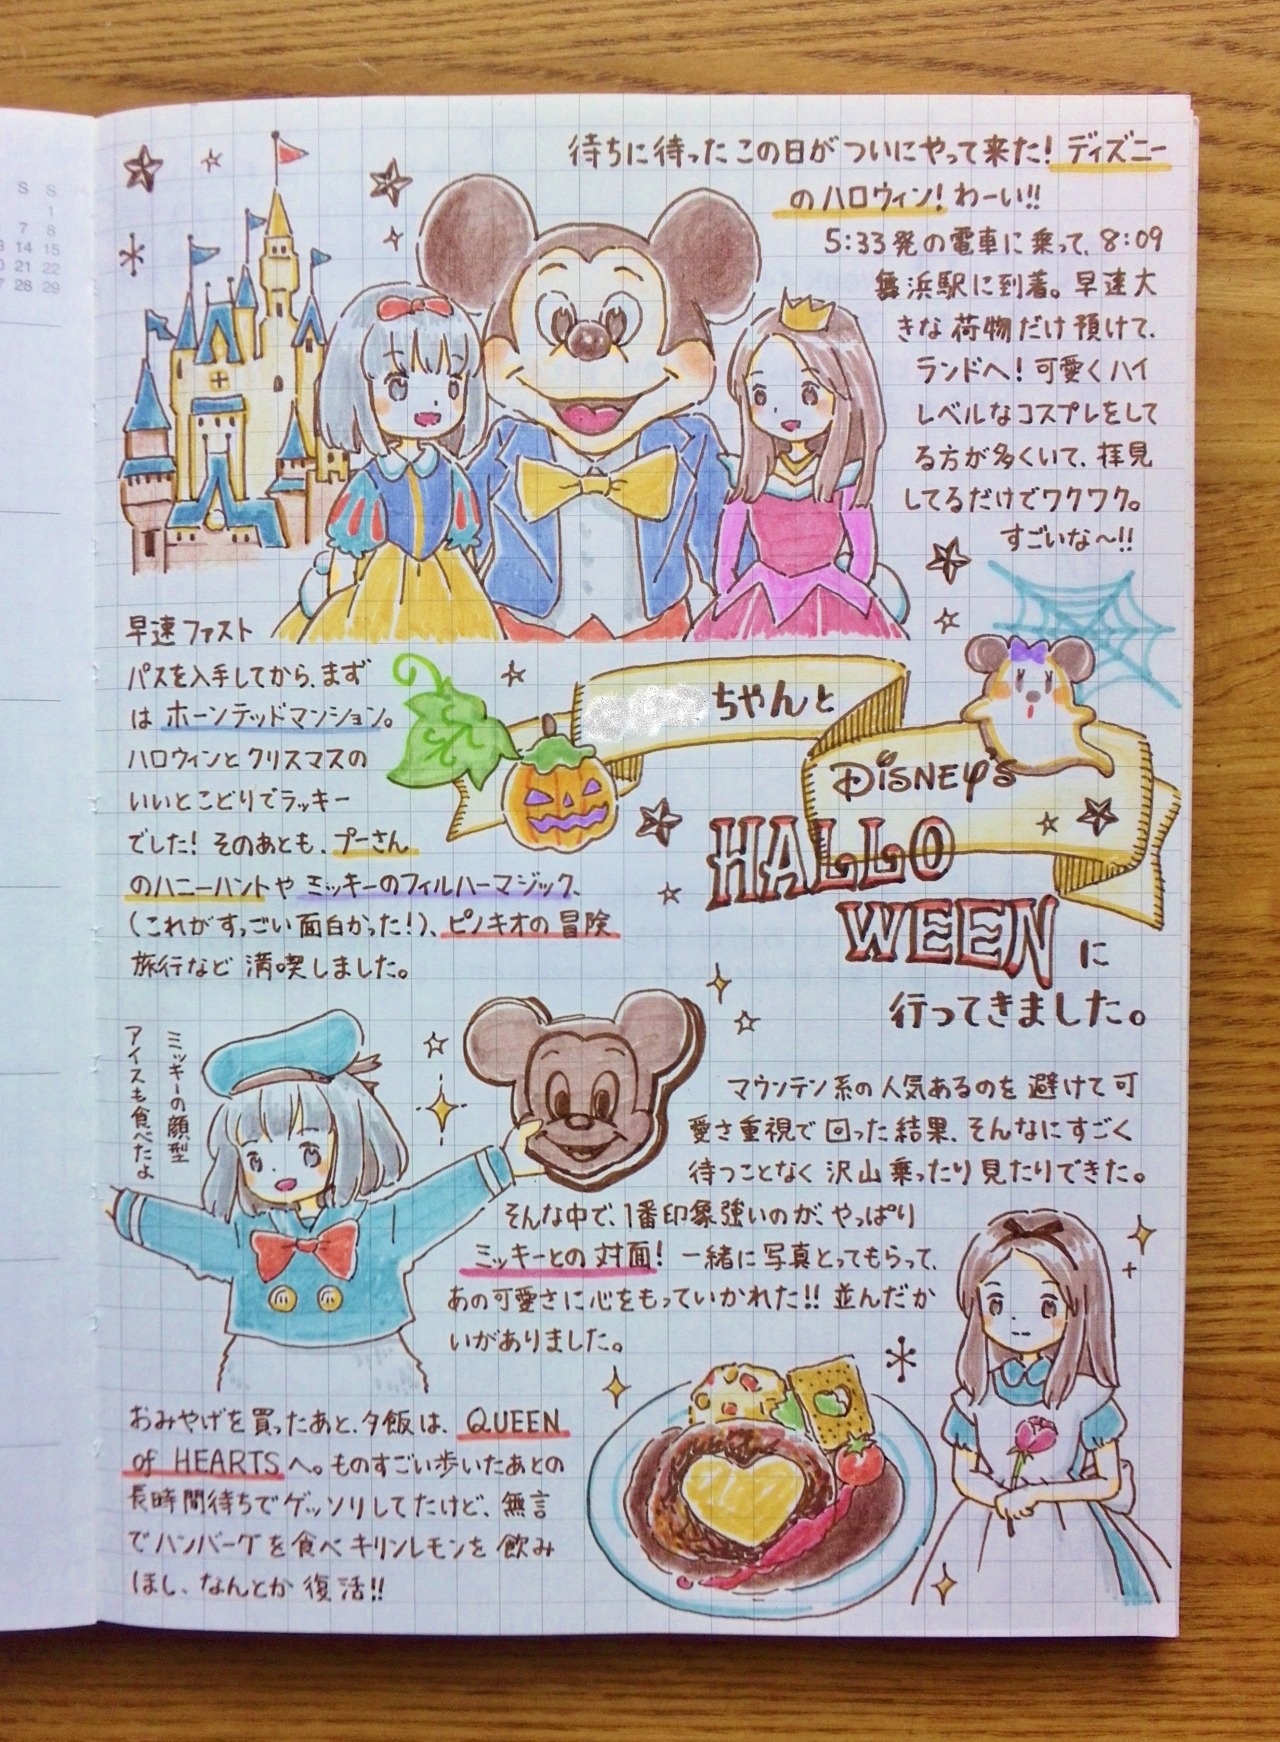 S S
1
7 8
14 15
21 22
28 29
待ちに待ったこの日がついにやって来た!ディズニー
のハロウィン!わーい!!
5:33発の電車に乗って、8:09
舞浜駅に到着。早速大
きな荷物だけ預けて、
ランドへ!可愛くハイ
レベルなコスプレをして
る方が多くいて、拝見
してるだけでワクワク。
すごいな〜!!
早速ファスト
パスを入手してから、まず
はホーンテッドマンション。
ハロウィンとクリスマスの
いいとこどりでラッキー
でした!そのあとも、プーさん
のハニーハントやミッキーのフィルハーマジック、
(これがすっごい面白かった!)、ピノキオの冒険
旅行など満喫しました。
ちゃんと
DiSNEY'S
HALLO
WEEN に
行ってきました。
ミッキーの顔型
アイスも食べたよ
マウンテン系の人気あるのを避けて可
愛さ重視で回った結果、そんなにすごく
待つことなく沢山乗ったり見たりできた。
そんな中で、1番印象強いのが、やっぱり
ミッキーとの対面!一緒に写真とってもらって、
あの可愛さに心をもっていかれた!!並んだか
いがありました。
おみやげを買ったあと、夕飯は、QUEEN
of HEARTSへ。ものすごい歩いたあとの
長時間待ちでゲッソリしてたけど、無言
でハンバーグを食べキリンレモンを飲み
ほし、なんとか復活!!